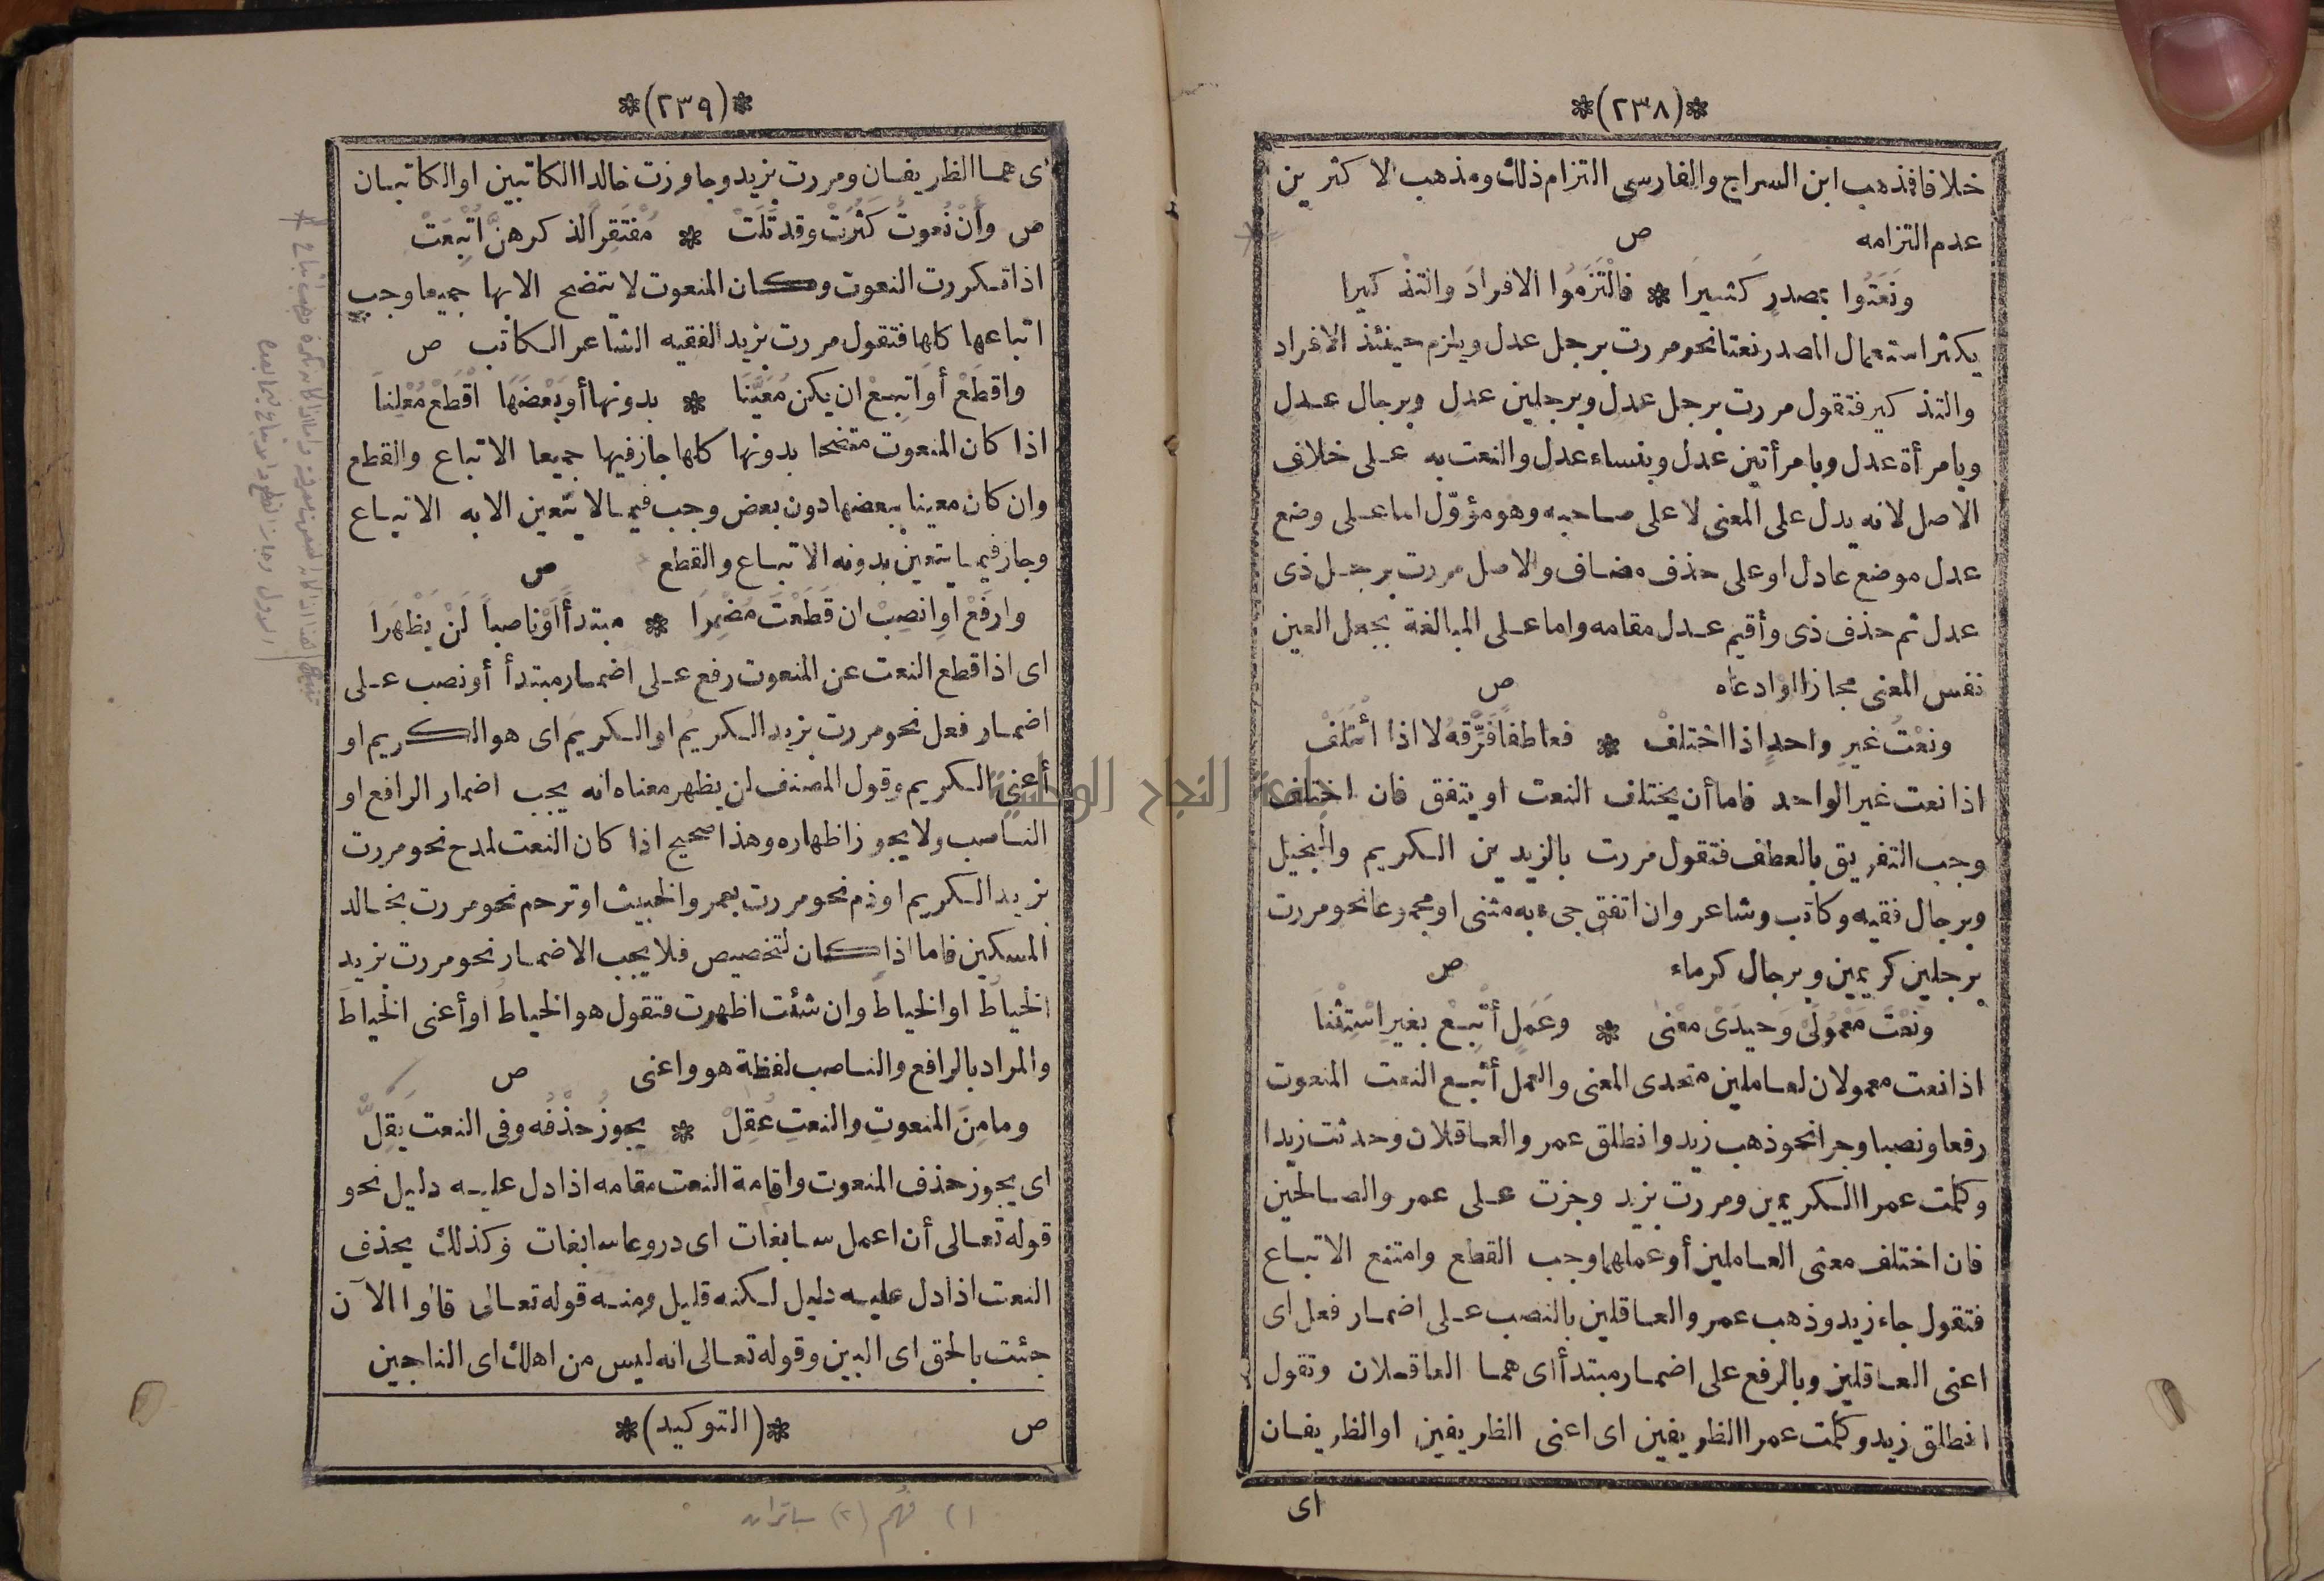 *(٢٣٨)*
خلافا فذهب ابن السراج والفارسى التزام ذلك ومذهب الاكثرين
عدم التزامه ص
ونَعَتُوا بمصدرٍ كَثيرَا * فالْتَزَمُوا الافرادَ والتذْكيرا
يكثر استعمال المصدر نعتا نحو مررت برجل عدل ويلزم حينئذ الافراد
والتذكير فتقول مررت برجل عدل وبرجلين عدل وبرجال عدل
وبامرأة عدل وبامرأتين عدل وبنساء عدل والنعت به على خلاف
الاصل لانه يدل على المعنى لا على صاحبه وهو مؤوّل اما على وضع
عدل موضع عادل او على حذف مضاف والاصل مررت برجل ذى
عدل ثم حذف ذى وأقيم عدل مقامه واما على المبالغة بجعل العين
نفس المعنى مجازا او ادعاه ص
ونعْتُ غيرِ واحدٍ اذا اختلفْ * فعاطفًا فَرِّقهُ لا اذا أْتَلَفْ
اذا نعت غير الواحد فاما أن يختلف النعت او يتفق فان اختلف
وجب التفريق بالعطف فتقول مررت بالزيدين الكريم والبخيل
وبرجال فقيه وكاتب وشاعر وان اتفق جىء به مثنى او مجموعا نحو مررت
برجلين كريمين وبرجال كرماء ص
ونعْتَ مَعْمُولَىْ وَحيدَىْ معْنى * وعَمَلٍ أتْبِعْ بغيرِ اسْتِثْنَا
اذا نعت معمولان لعاملين متحدى المعنى والعمل أتبع النعت المنعوت
رفعا ونصبا وجرا نحو ذهب زيد وانطلق عمرو العاقلان وحدثت زيدا
وكلمت عمرا الكريمين ومررت بزيد وجزت على عمرو الصالحين
فان اختلف معنى العاملين أو عملهما وجب القطع وامتنع الاتباع
فتقول جاء زيد وذهب عمرو العاقلين بالنصب على اضمار فعل اى
اعنى العاقلين وبالرفع على اضمار مبتدأ اى هما العاقلان وتقول
انطلق زيد وكلمت عمرا الظريفين اى اعنى الظريفين او الظريفان
اى
*(٢٣٩)*
أى هما الظريفان ومررت بزيد وجاوزت خالدا الكاتبين او الكاتبان
ص وأنْ نُعوتٌ كَثُرَتْ وقد تَلَتْ * مُفْتَقِرًا لذكرهنَّ اُتْبِعَتْ
اذا تكررت النعوت وكان المنعوت لا يتضح الا بها جميعا وجب
اتباعها كلها فتقول مررت بزيد الفقيه الشاعر الكاتب ص
واقطَعْ أو اتبِعْ ان يكن مُعَيَّنَا * بدونها أو بَعْضَهَا اقْطَعْ مُعْلِنَا
اذا كان المنعوت متضحا بدونها كلها جاز فيها جميعا الاتباع والقطع
وان كان معينا ببعضها دون بعض وجب فيما لا يتعين الا به الاتباع
وجاز فيما يتعين بدونه الاتباع والقطع ص
وارفَعْ اوِ انصِبْ ان قَطَعْتَ مُضْمِرَا * مبتدأً اَوْ ناصباً لَنْ يَظْهَرَا
اى اذا قطع النعت عن المنعوت رفع على اضمار مبتدأ أو نصب على
اضمار فعل نحو مررت بزيد الكريمُ او الكريمَ اى هو الكريم او
أعنى الكريم وقول المصنف لن يظهر معناه انه يجب اضمار الرافع او
الناصب ولا يجوز اظهاره وهذا صحيح اذا كان النعت لمدح نحو مررت
بزيد الكريم او ذم نحو مررت بعمرو الخبيث او ترحم نحو مررت بخالد
المسكين فاما اذا كان لتخصيص فلا يجب الاضمار نحو مررت بزيد
الخياط او الخياط وان شئت اظهرت فتقول هو الخياط او أعنى الخياط
والمراد بالرافع والناصب لفظة هو واعنى ص
وما مِنَ المنعوتِ والنعتِ عُقِلْ * يجوزُ حذْفُه وفى النعت يَقِلّْ
اى يجوز حذف المنعوت واقامة النعت مقامه اذا دل عليه دليل نحو
قوله تعالى أن اعمل سابغات اى دروعا سابغات وكذلك يحذف
النعت اذا دل عليه دليل لكنه قليل ومنه قوله تعالى قالوا الآن
جئت بالحق اى البين وقوله تعالى انه ليس من اهلك اى الناجين
ص *(التوكيد)*
جامعة النجاح الوطنية